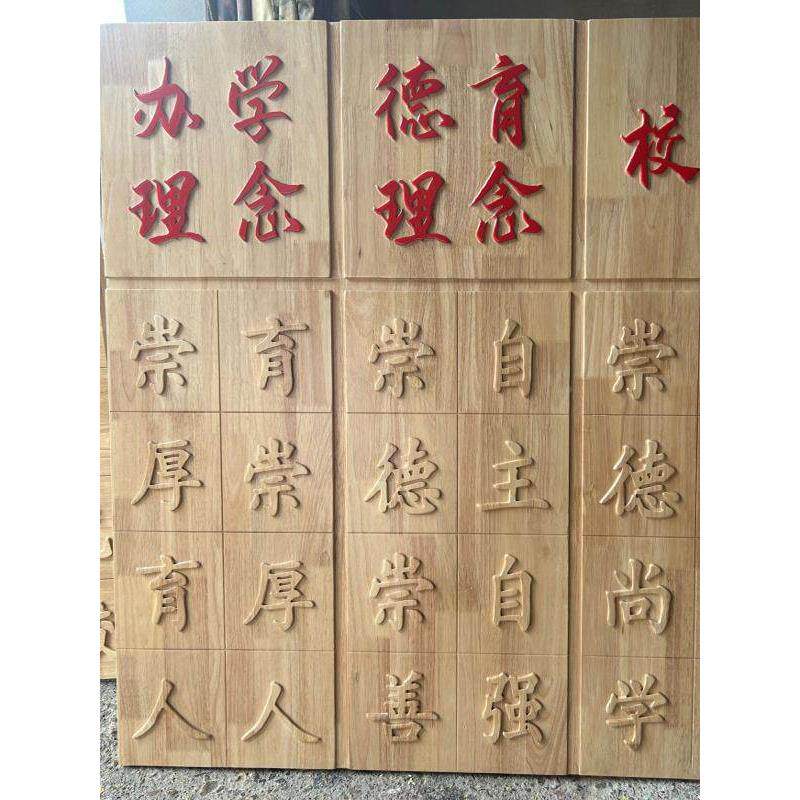 办学
理念
崇厚育人
育崇厚人
德育
理念
崇德崇善
自主自强
校
崇德尚学